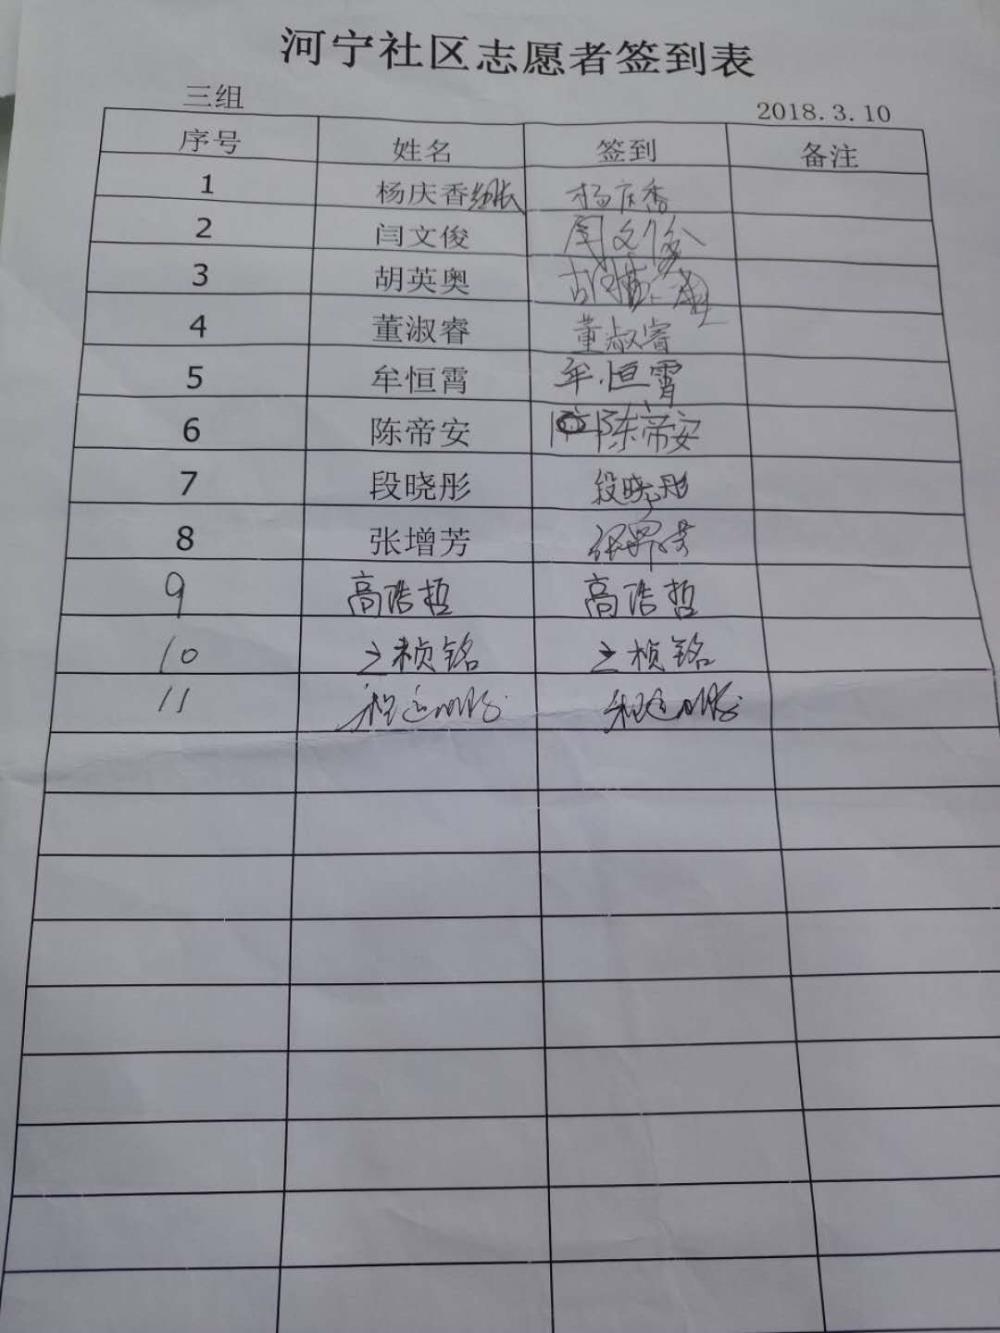 河宁社区志愿者签到表
三组 2018.3.10
序号 姓名 签到 备注
1 杨庆香组长 杨庆香
2 闫文俊 闫文俊
3 胡英奥
4 董淑睿 董淑睿
5 牟恒霄 牟恒霄
6 陈帝安 陈帝安
7 段晓彤 段晓彤
8 张增芳
9 高浩哲 高浩哲
10 王桢铭 王桢铭
11